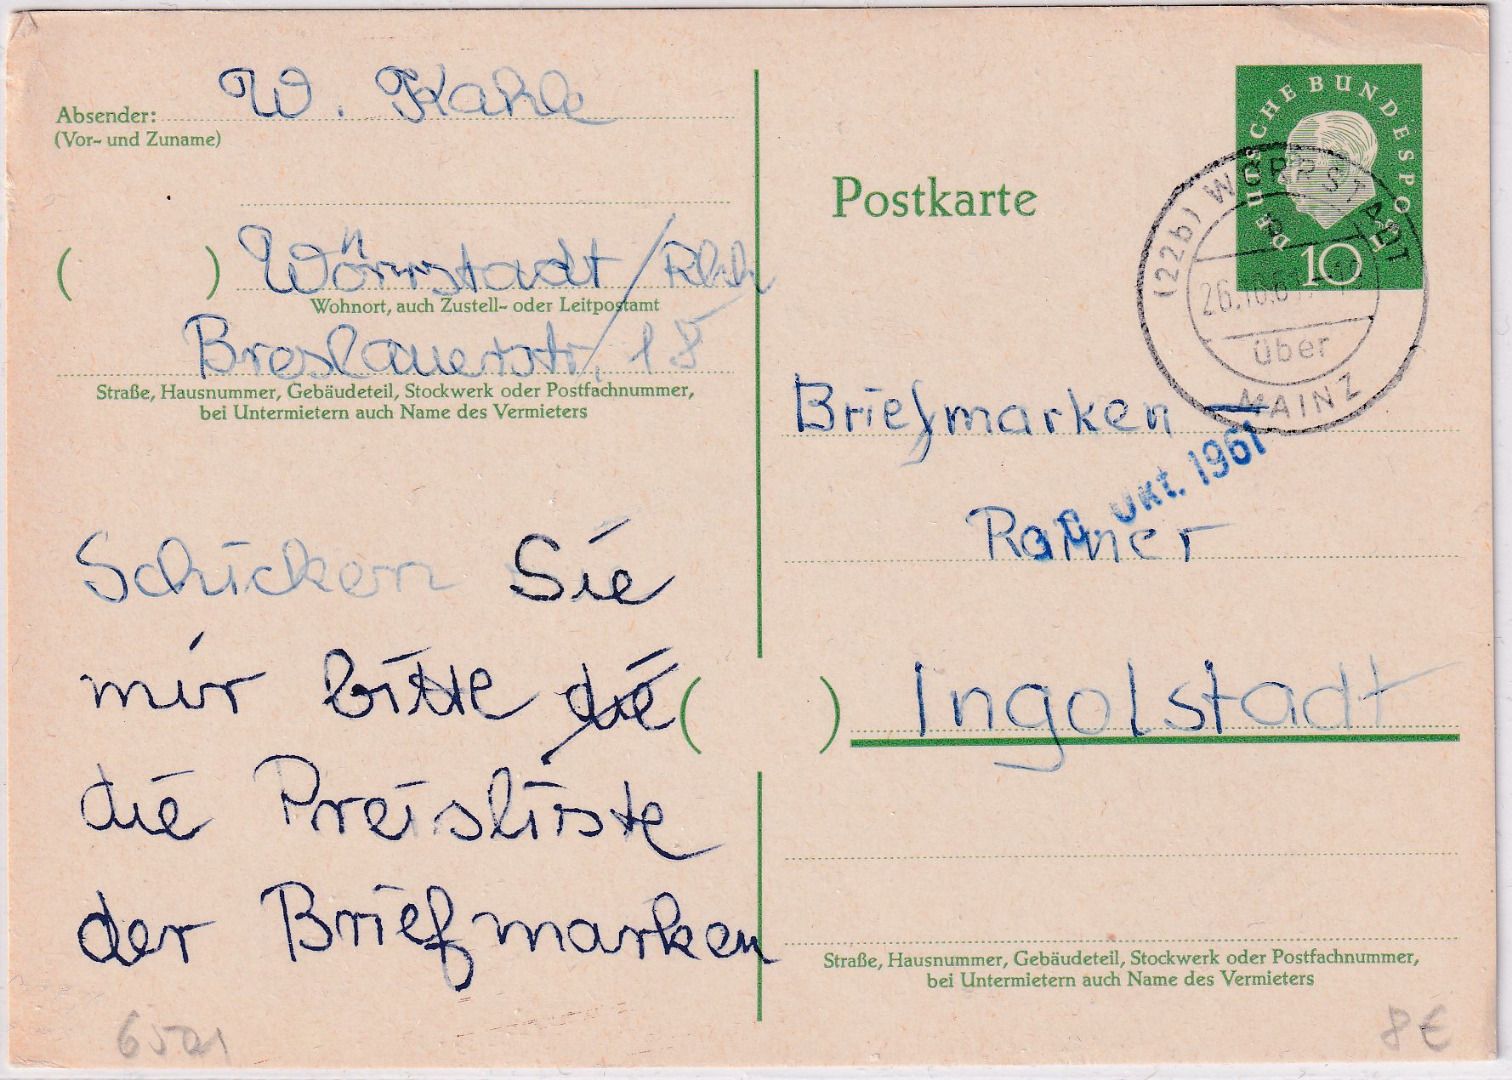 Absender:
(Vor- und Zuname)
W. Kahle
( ) Wörrstadt / Rhh
Wohnort, auch Zustell- oder Leitpostamt
Breslauerstr. 18
Straße, Hausnummer, Gebäudeteil, Stockwerk oder Postfachnummer,
bei Untermietern auch Name des Vermieters
Schicken Sie
mir bitte die
die Preisliste
der Briefmarken
Postkarte
DEUTSCHE BUNDESPOST
10
(22b) WÖRRSTADT
26.10.61
über
MAINZ
Briefmarken -
Okt. 1961
Rainer
( ) Ingolstadt
Straße, Hausnummer, Gebäudeteil, Stockwerk oder Postfachnummer,
bei Untermietern auch Name des Vermieters
8 €